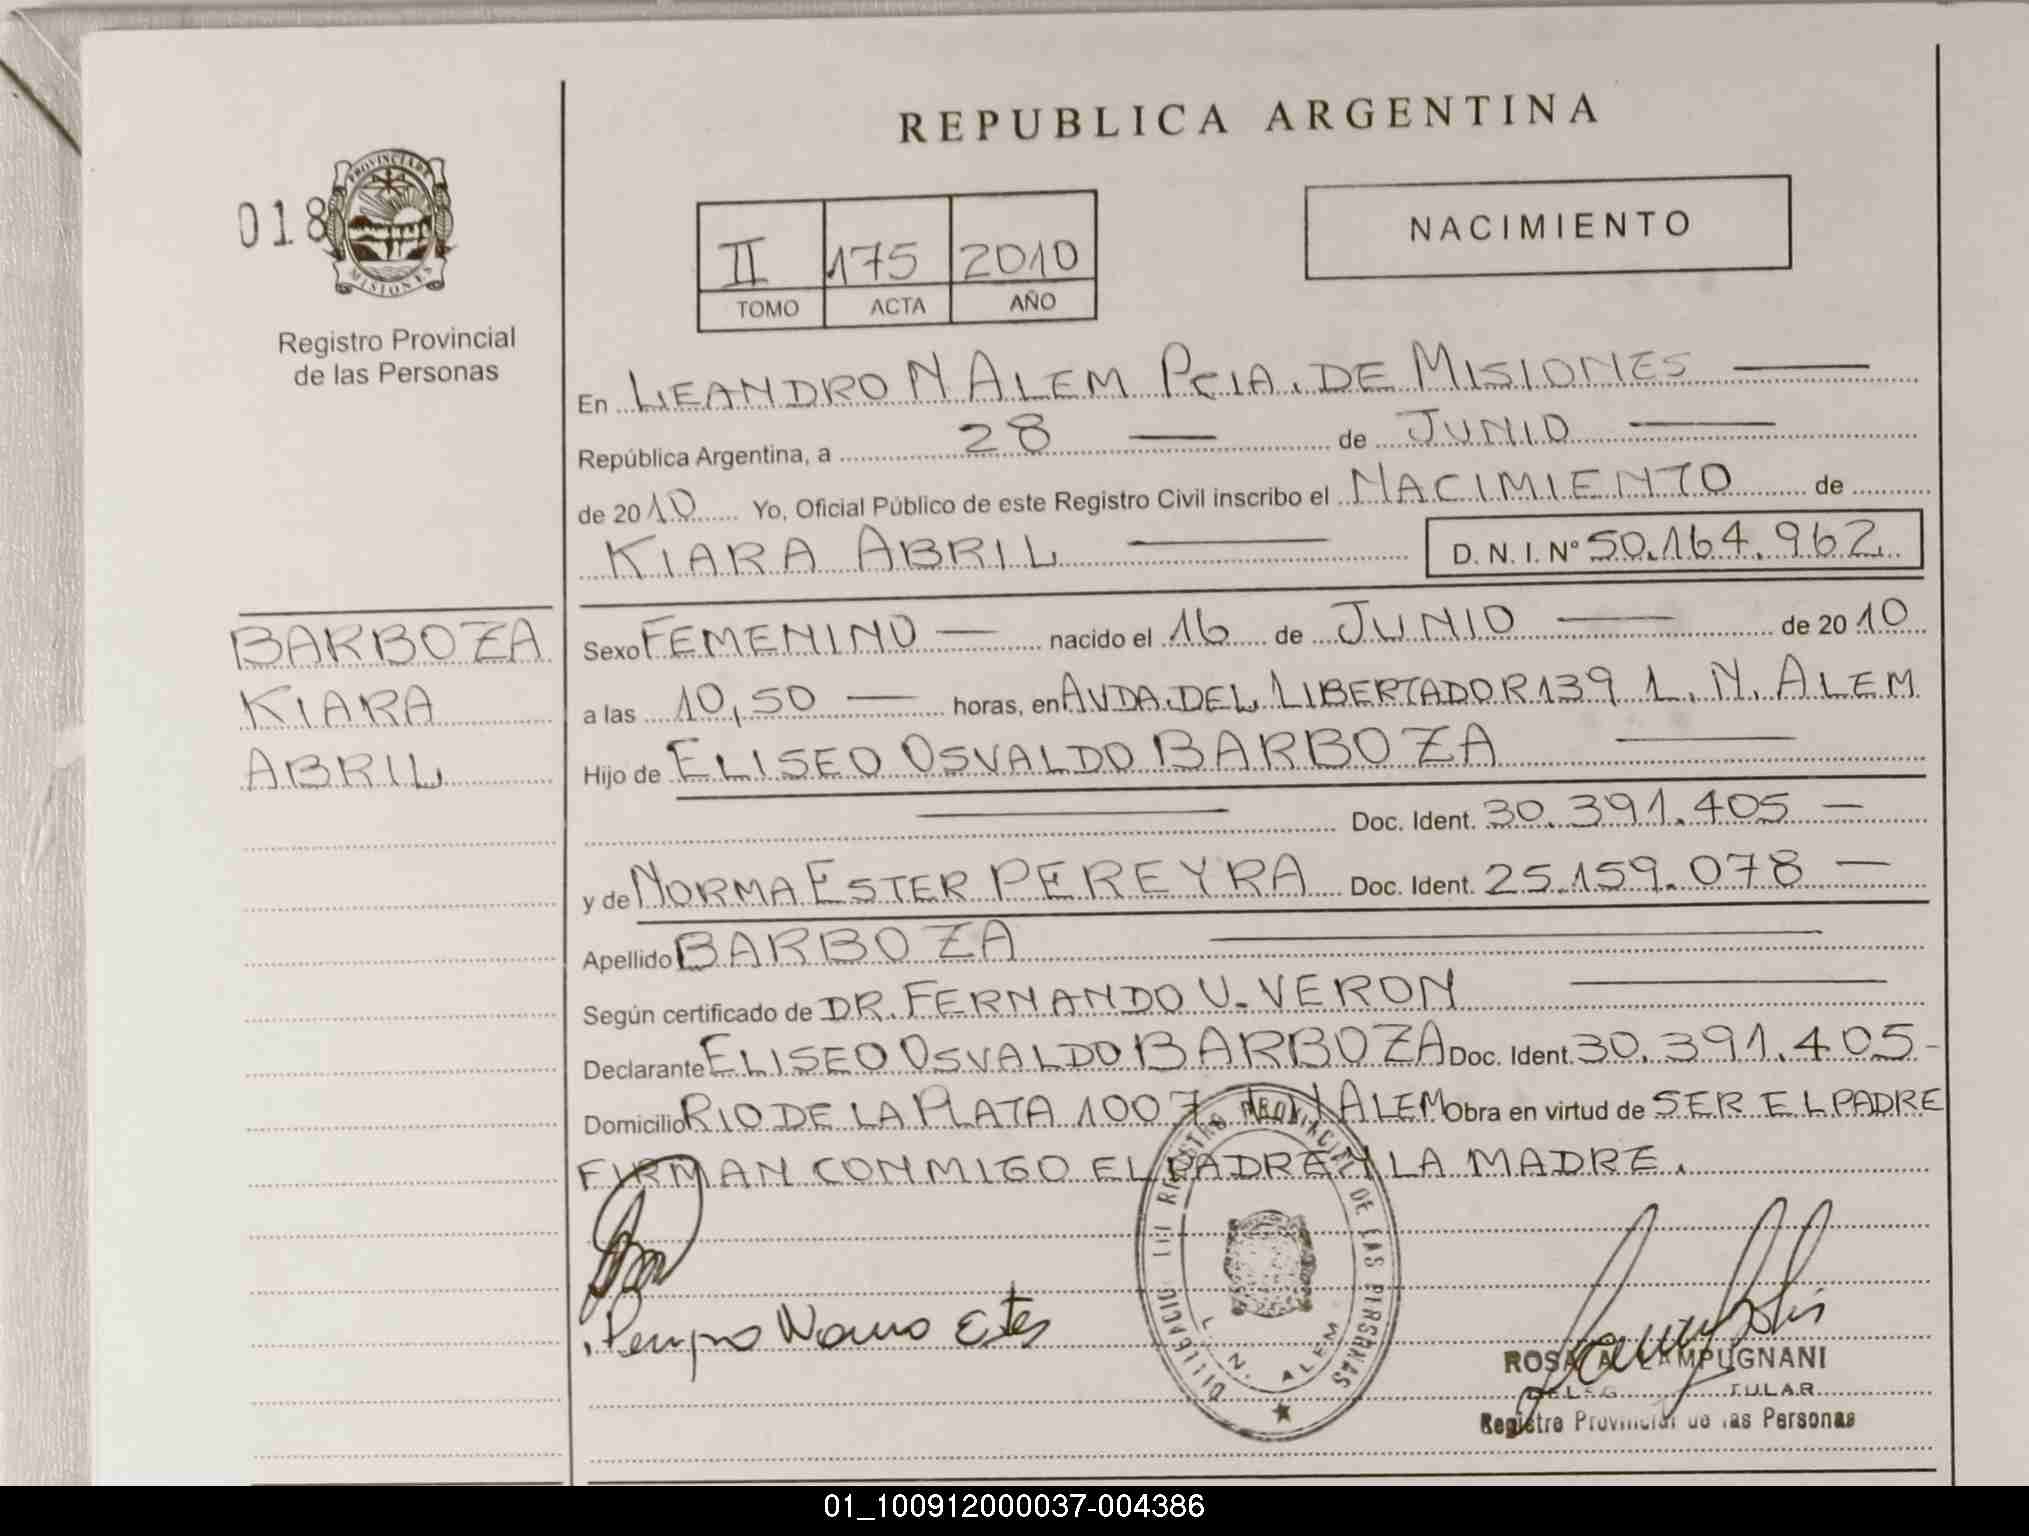 REPUBLICA ARGENTINA
018
PROVINCIA DE
MISIONES
Registro Provincial
de las Personas
II 175 2010
TOMO ACTA AÑO
NACIMIENTO
En LEANDRO N ALEM PCIA. DE MISIONES
República Argentina, a 28 de JUNIO
de 2010 Yo, Oficial Público de este Registro Civil inscribo el NACIMIENTO de
KIARA ABRIL D. N. I. N° 50.164.962
BARBOZA
KIARA
ABRIL
Sexo FEMENINO nacido el 16 de JUNIO de 2010
a las 10,50 horas, en AVDA.DEL LIBERTADOR 139 L. N. ALEM
Hijo de ELISEO OSVALDO BARBOZA
Doc. Ident. 30.391.405
y de NORMA ESTER PEREYRA Doc. Ident. 25.159.078
Apellido BARBOZA
Según certificado de DR. FERNANDO U. VERON
Declarante ELISEO OSVALDO BARBOZA Doc. Ident. 30.391.405
Domicilio RIO DE LA PLATA 1007 ALEM Obra en virtud de SER EL PADRE
FIRMAN CONMIGO EL PADRE Y LA MADRE.
REGISTRO PROVINCIAL DE LAS PERSONAS
L. N. ALEM
ROSA A. LAMPUGNANI
Registro Provincial de las Personas
01_100912000037-004386